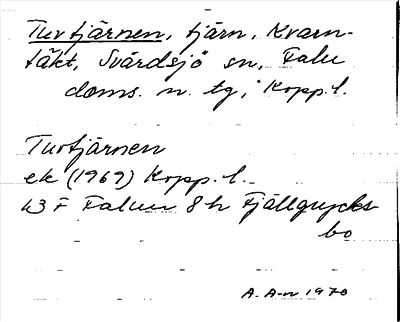 Turtjärnen, tjärn, Kvarn-
täkt, Svärdsjö sn, Falu
doms. n. tg, Kopp. l.
Turtjärnen
ek (1969) Kopp. l.
13 F Falun 8 h Fjällgrycks-
bo
A. A-n 1970